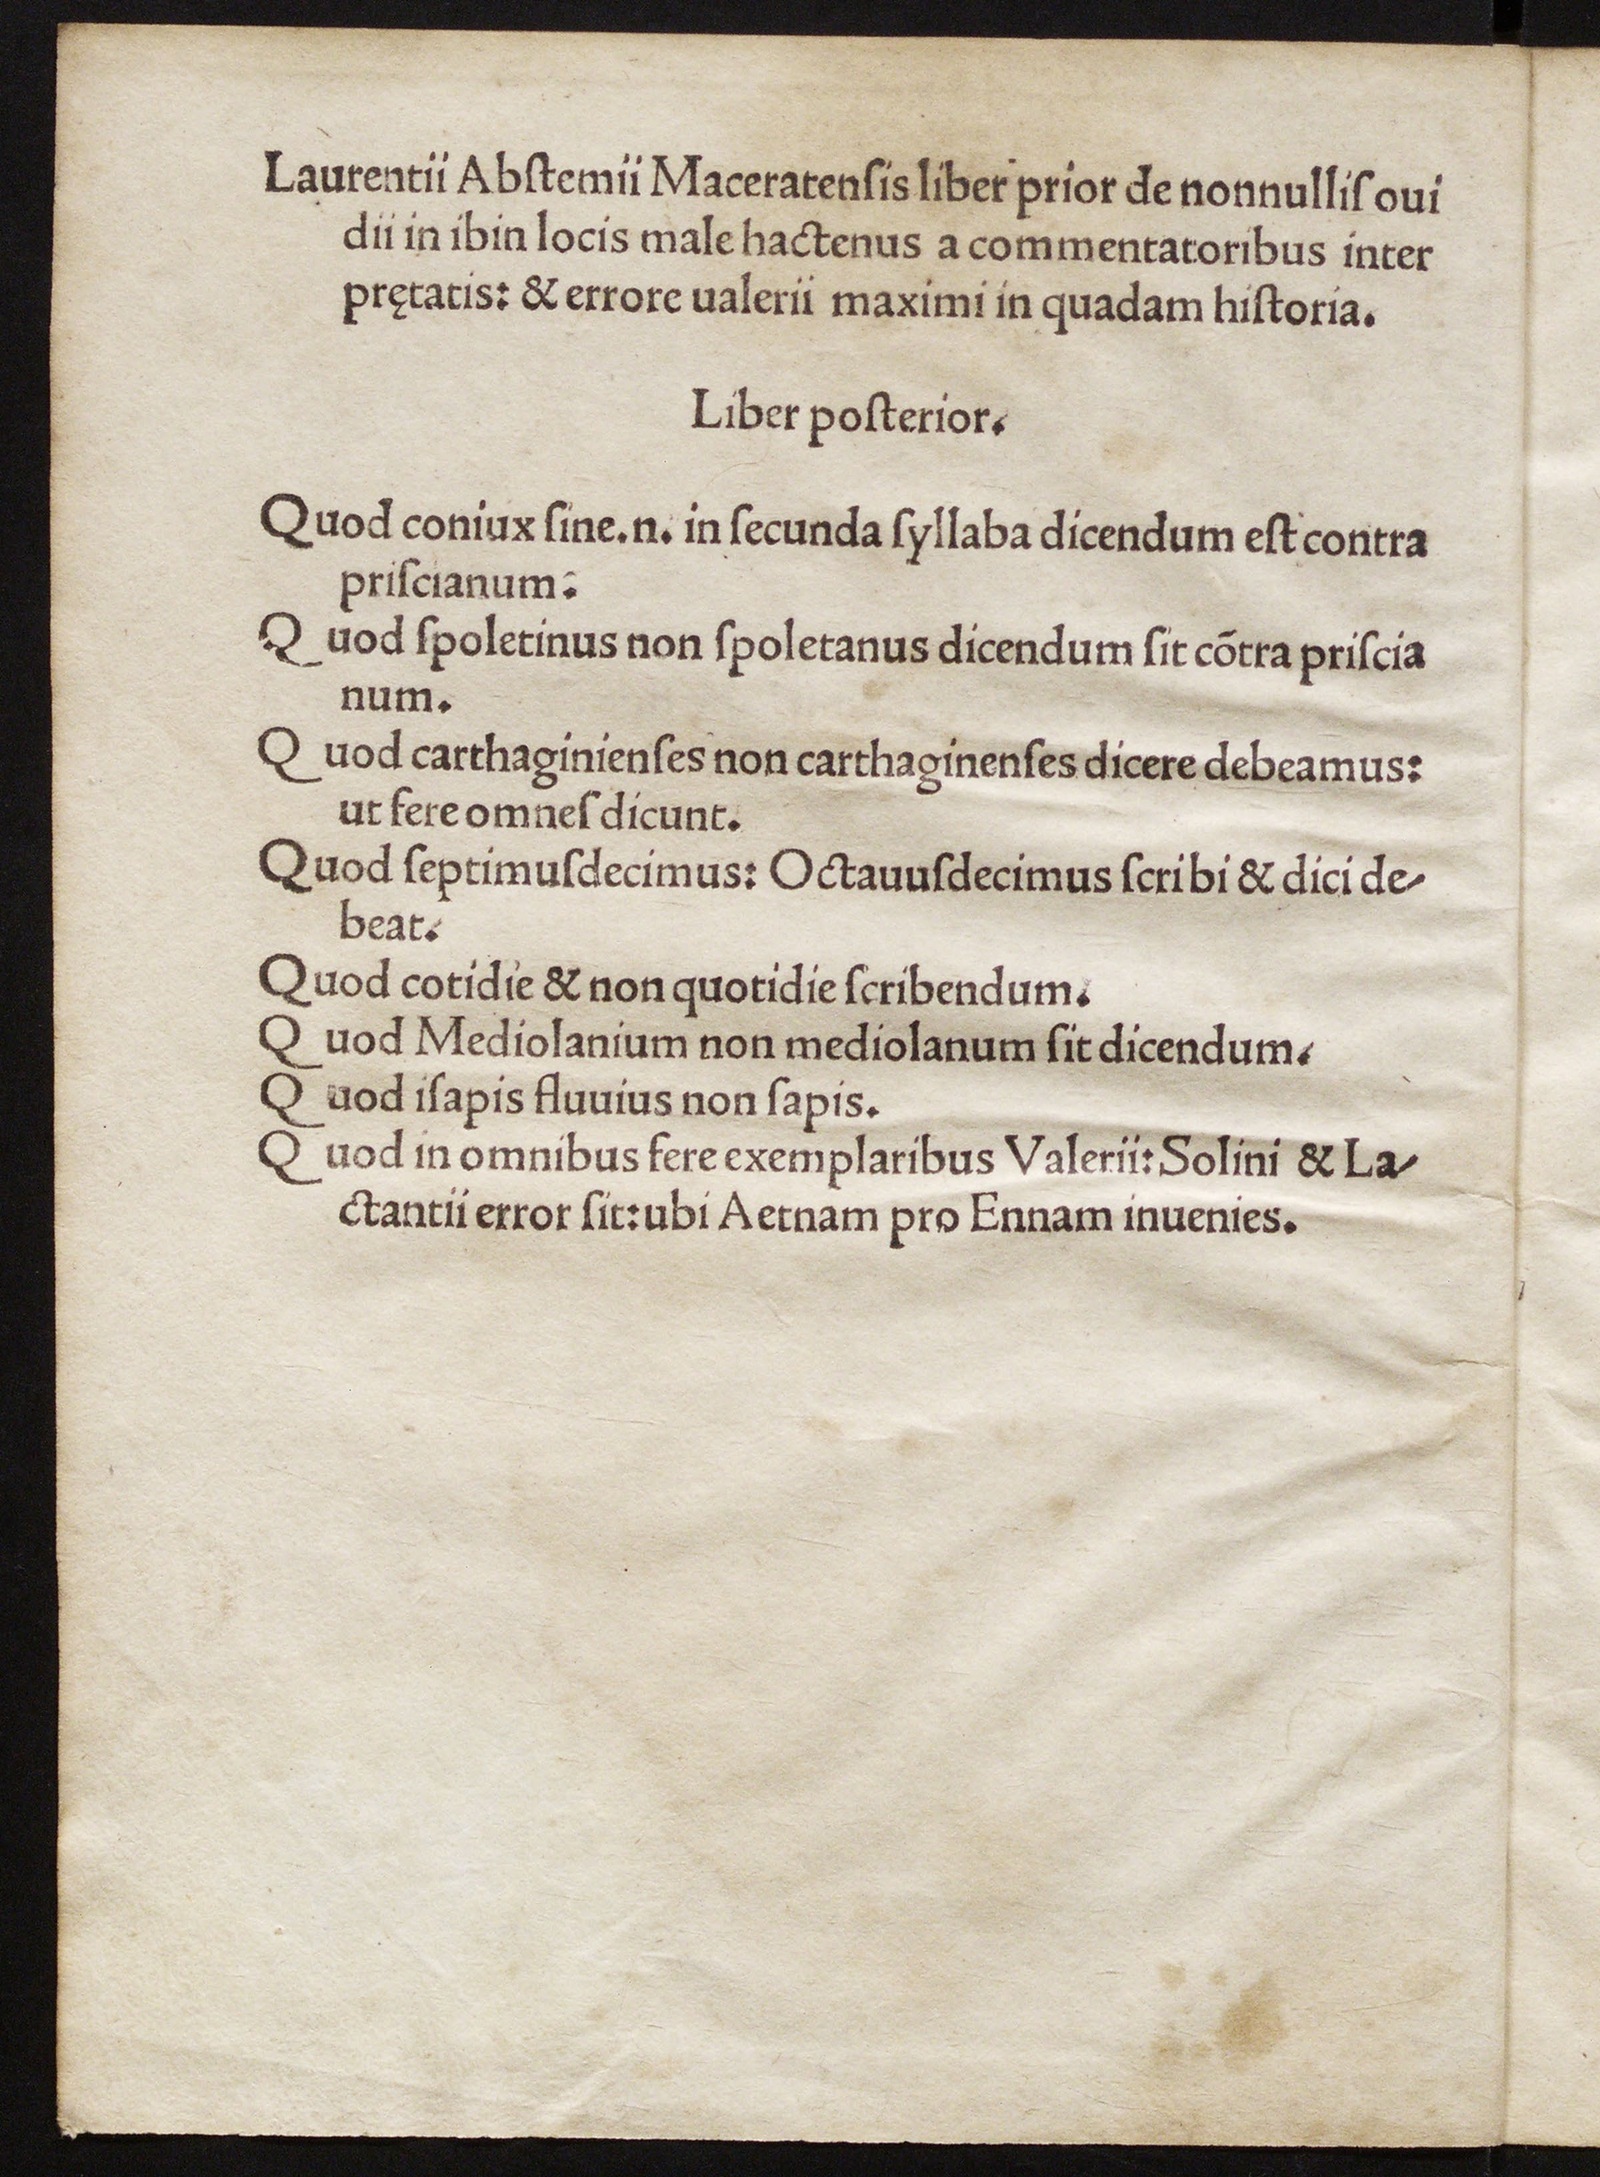 Laurentii Abſtemii Maceratenſis liber prior de nonnulliſ oui
dii in ibin locis male hactenus a commentatoribus inter
prętatis: & errore ualerii maximi in quadam hiſtoria.
Liber poſterior.
Quod coniux ſine.n. in ſecunda ſyllaba dicendum eſt contra
priſcianum:
Quod ſpoletinus non ſpoletanus dicendum ſit cõtra priſcia
num.
Quod carthaginienſes non carthaginenſes dicere debeamus:
ut fere omneſ dicunt.
Quod ſeptimuſdecimus: Octauuſdecimus ſcribi & dici de-
beat.
Quod cotidie & non quotidie ſcribendum.
Quod Mediolanium non mediolanum ſit dicendum.
Quod iſapis fluuius non ſapis.
Quod in omnibus fere exemplaribus Valerii: Solini & La-
ctantii error ſit: ubi Aetnam pro Ennam inuenies.